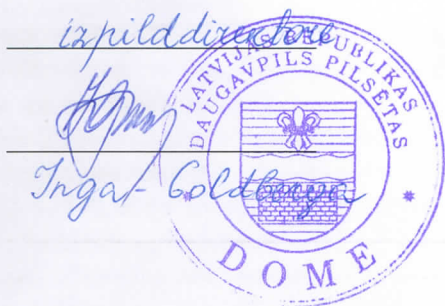 izpilddirektore
Inga Goldberga
LATVIJAS REPUBLIKAS
DAUGAVPILS PILSĒTAS
DOME